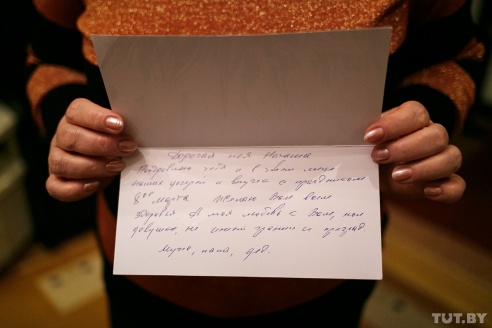 Дорогая моя Наташа
Поздравляю тебя и в твоем лице
наших дочурок и внучек с праздником
8го марта Желаю Вам всем
здоровья А моя любовь с Вами, мои
девушки, не имеет границ и преград.
Муж, папа, дед.
TUT.BY